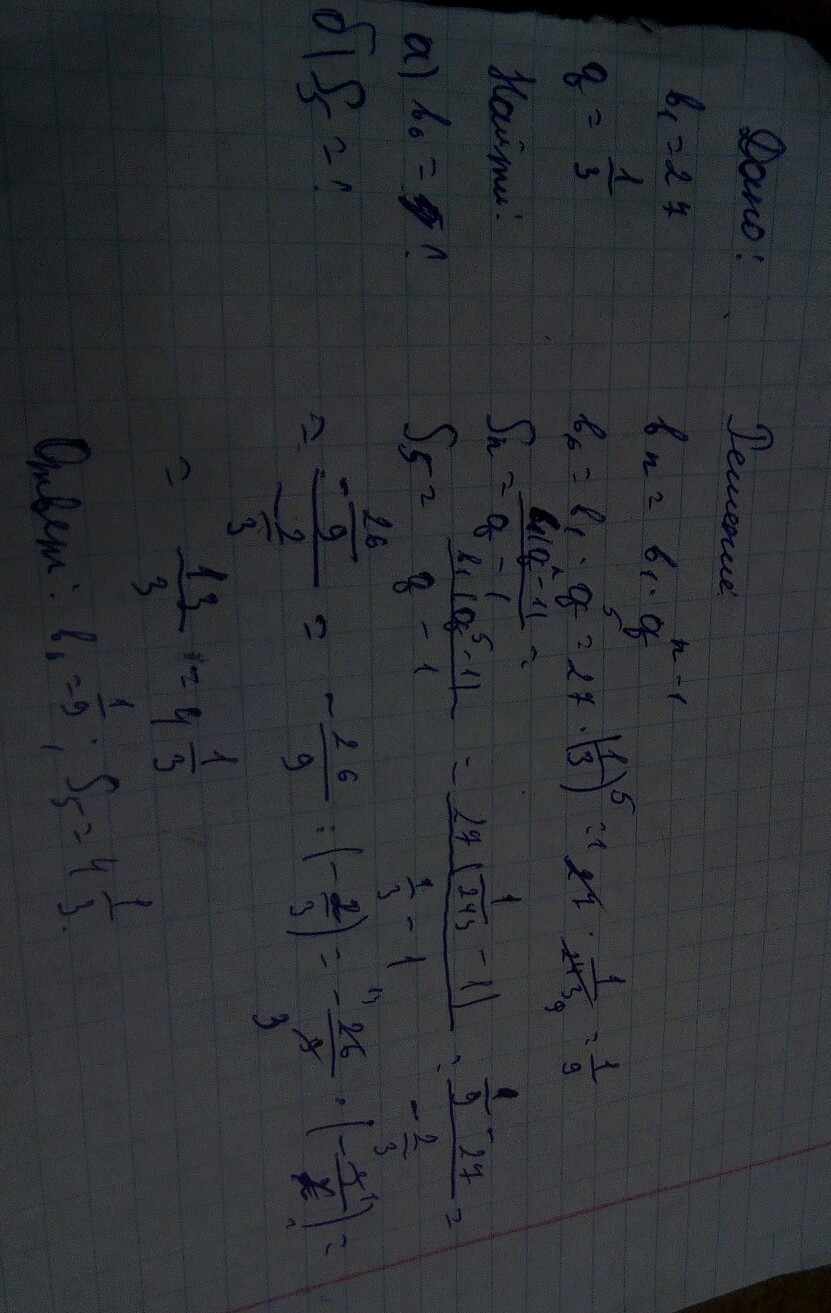 Дано:
b₁ = 27
q = 1/3
Найти:
а) b₆ = ?
б) S₅ = ?
Решение
bₙ = b₁ · qⁿ⁻¹
b₆ = b₁ · q⁵ = 27 · (1/3)⁵ = 27 · 1/243 = 1/9
Sₙ = b₁(qⁿ - 1)/q - 1 =
S₅ = b₁(q⁵ - 1)/q - 1 = 27(1/243 - 1)/1/3 - 1 = 1/9 - 27/-2/3 =
= -26/9/-2/3 = -26/9 : (-2/3) = -26/9 · (-3/2) =
= 13/3 = 4 1/3
Ответ: b₆ = 1/9; S₅ = 4 1/3.